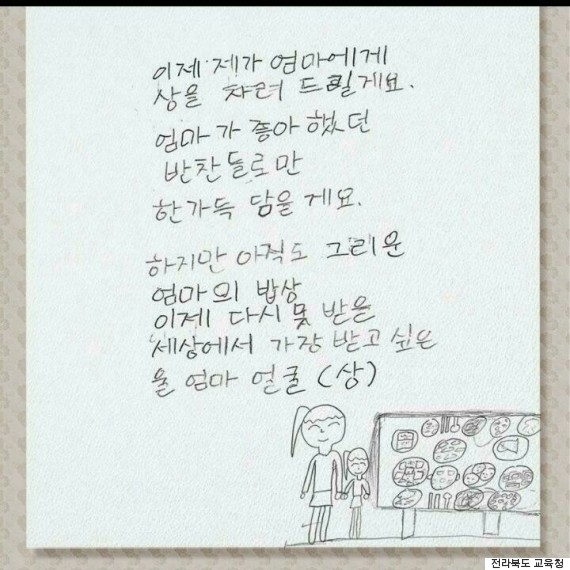 이제 제가 엄마에게
상을 차려 드릴게요.
엄마가 좋아했던
반찬들로만
한가득 담을게요.
하지만 아직도 그리운
엄마의 밥상
이제 다시 못 받을
세상에서 가장 받고 싶은
울 엄마 얼굴 (상)
전라북도 교육청